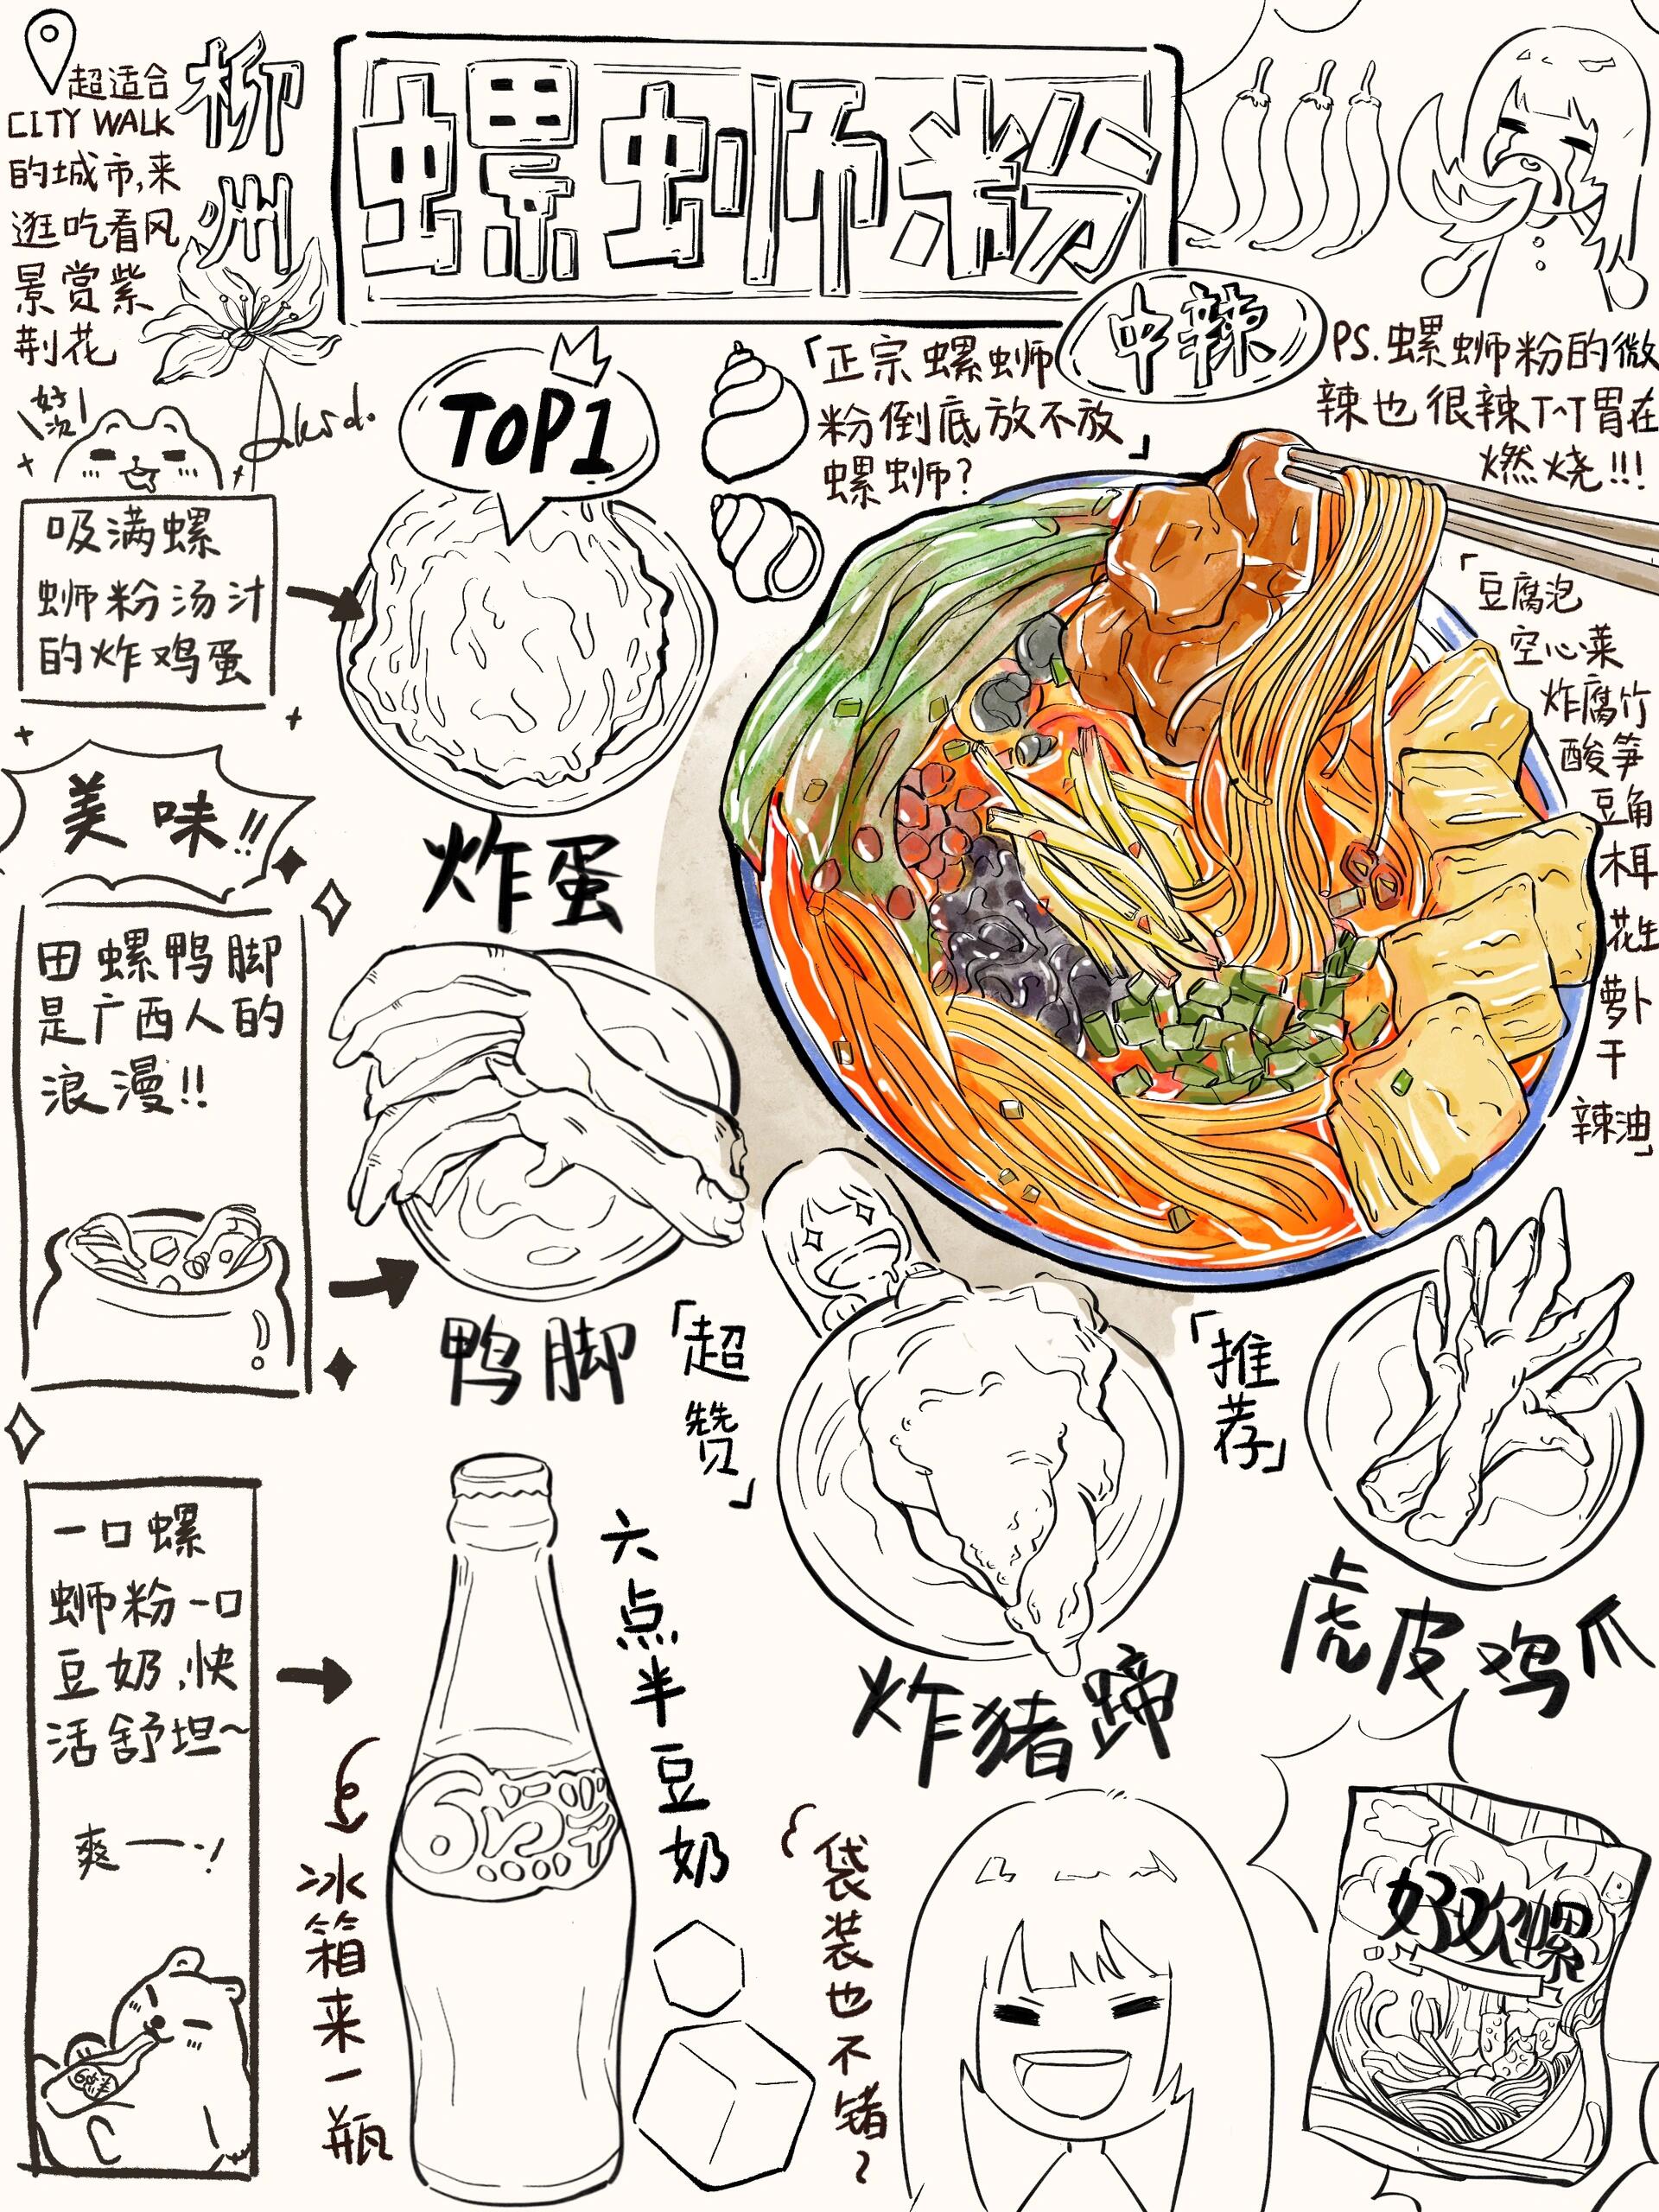 超适合
CITY WALK
的城市,来
逛吃看风
景赏紫
荆花
柳州
螺蛳粉
中辣
PS.螺蛳粉的微
辣也很辣T^T胃在
燃烧!!!
「正宗螺蛳
粉倒底放不放
螺蛳?」
TOP1
好次
吸满螺
蛳粉汤汁
的炸鸡蛋
炸蛋
「豆腐泡
空心菜
炸腐竹
酸笋
豆角
木耳
花生
萝卜
干
辣油」
美味!!
田螺鸭脚
是广西人的
浪漫!!
鸭脚
「超赞」
炸猪蹄
「推荐」
虎皮鸡爪
一口螺
蛳粉一口
豆奶,快
活舒坦~
爽一一!
六点半豆奶
冰箱来一瓶
袋装也不错~
好欢螺